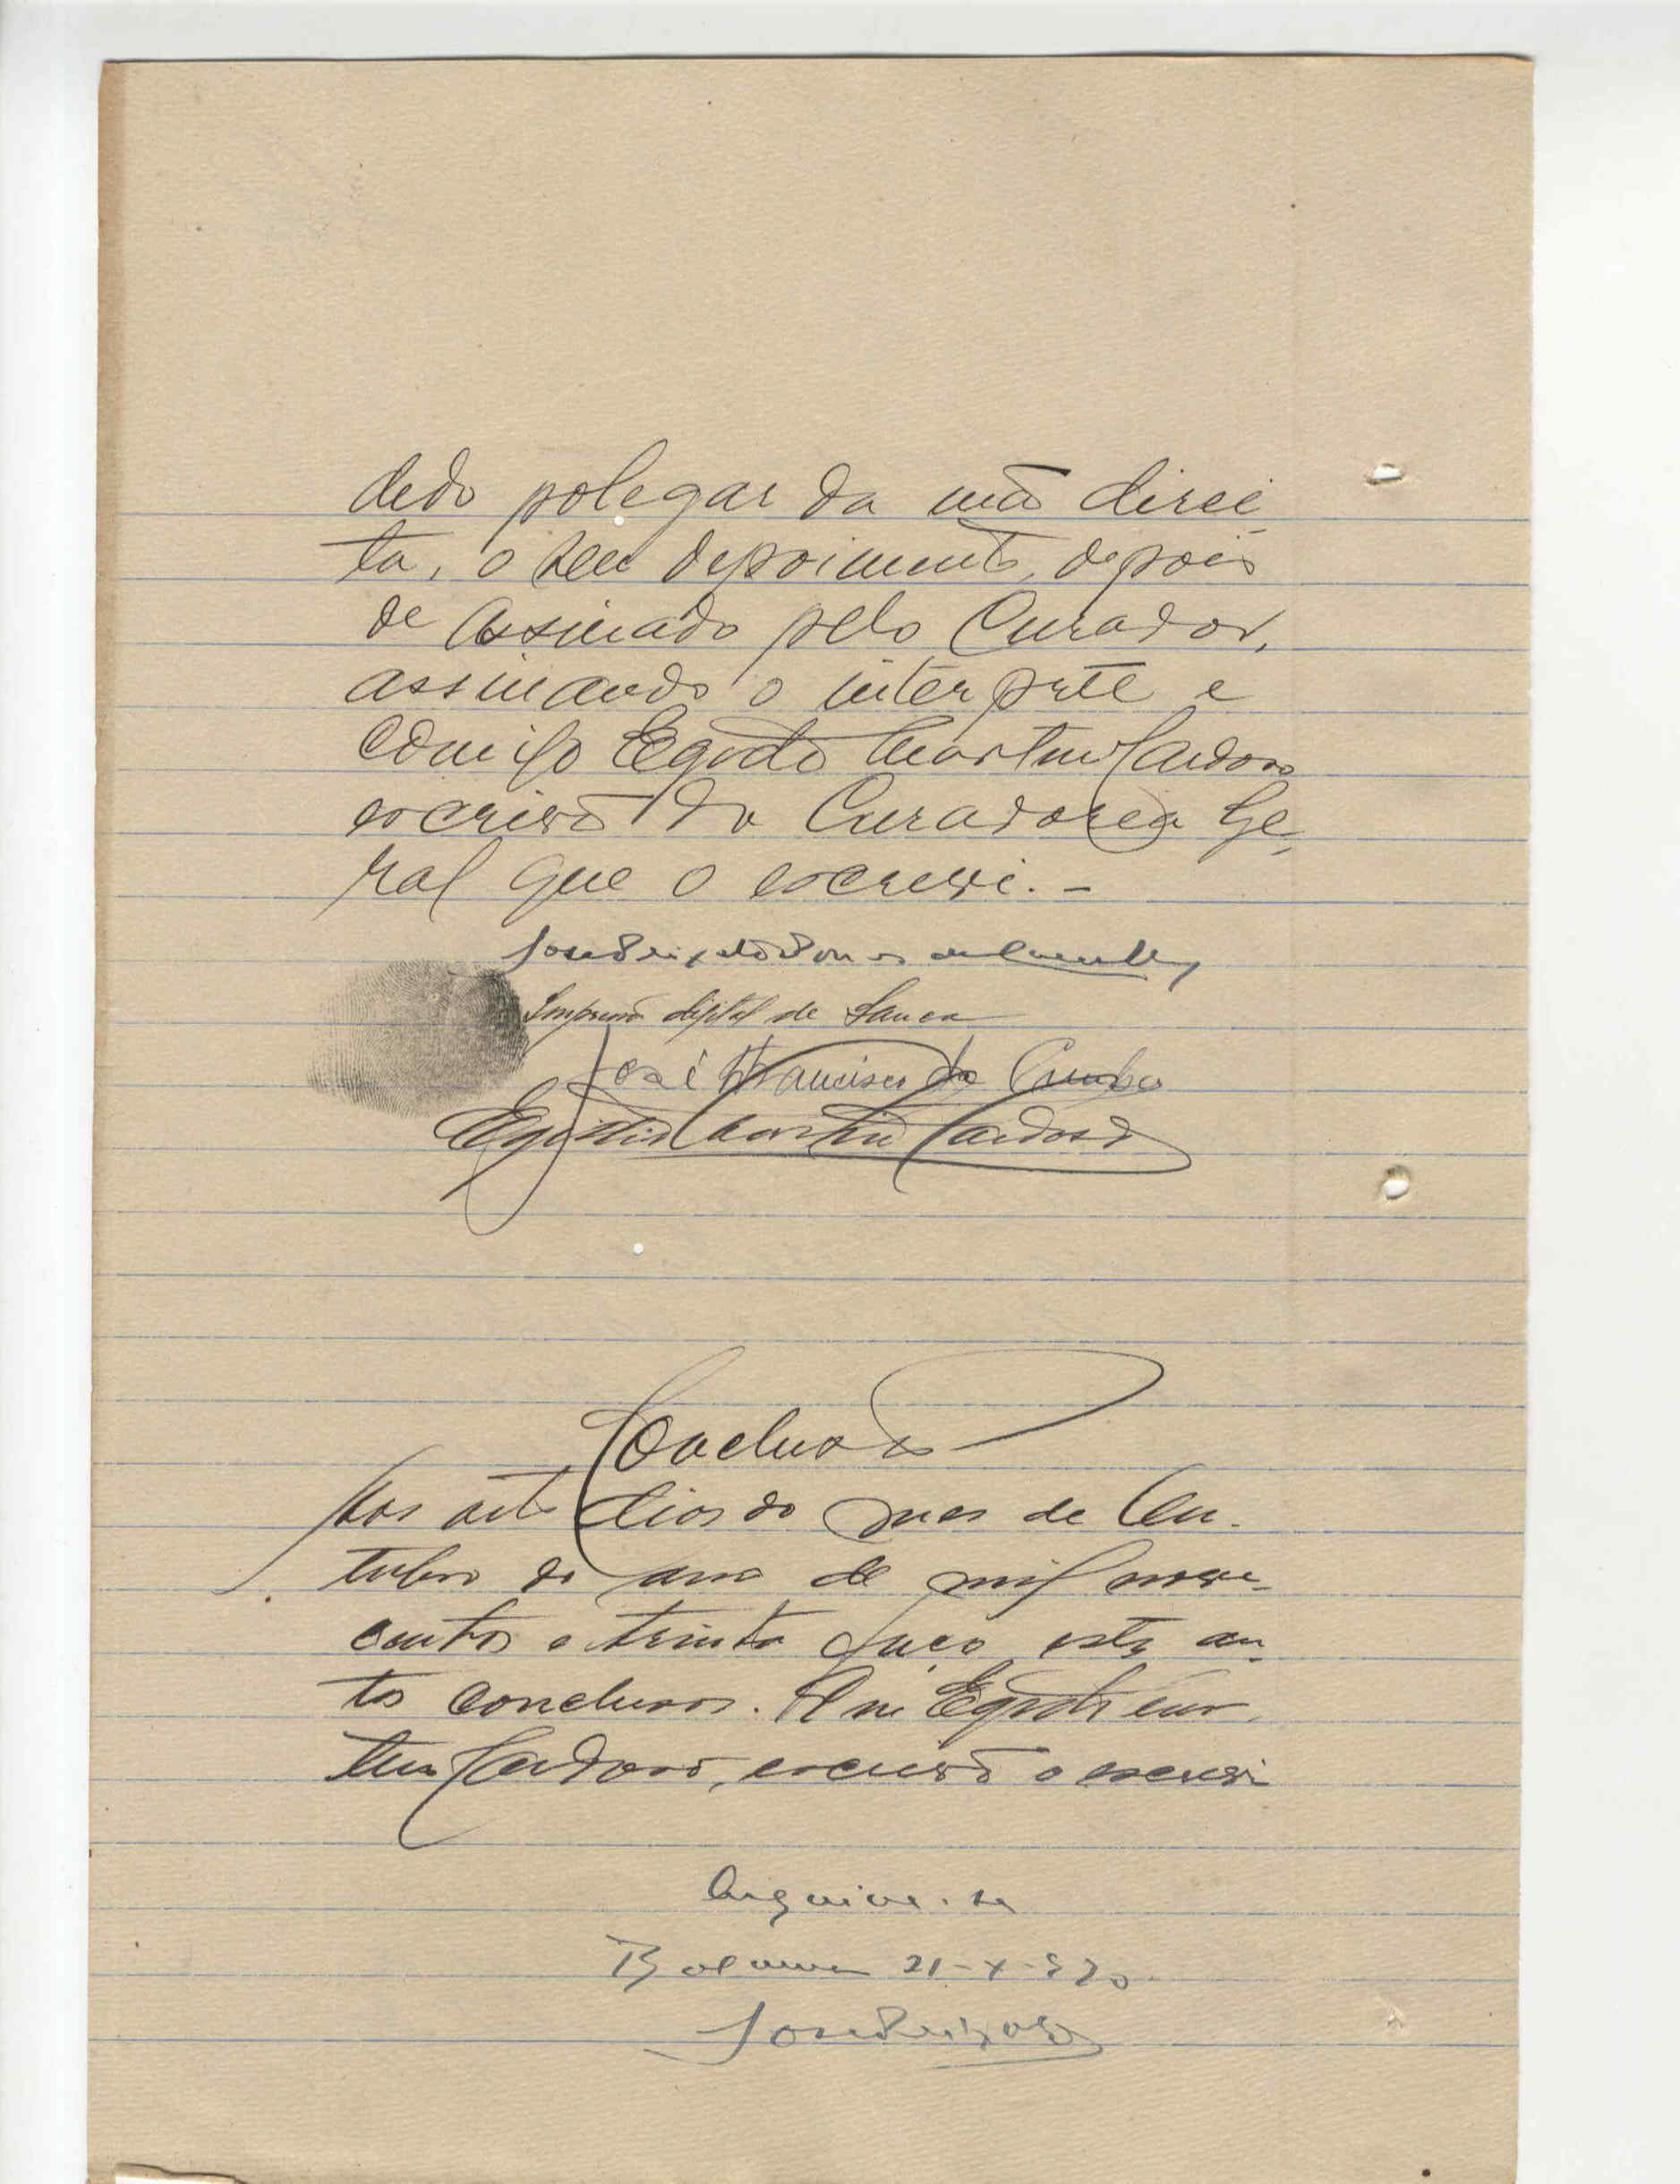 dedo polegar da mão direi-
ta, o seu depoimento, depois
de assinado pelo Curador,
assinando o interprete e
comigo Egidio Martins Cardoso
escrivão da Curadoria Ge-
ral que o escrevi. -
José Peixoto
Impressão digital de Sanca
José Francisco da Cunha
Egidio Martins Cardoso
Conclusão
Aos dias do mes de Ou-
tubro do ano de mil nove-
centos e trinta faço estes au-
tos conclusos. E eu Egidio Mar-
tins Cardoso, escrivão o escrevi
Arquive-se
Bolama 21-X-930
José Peixoto